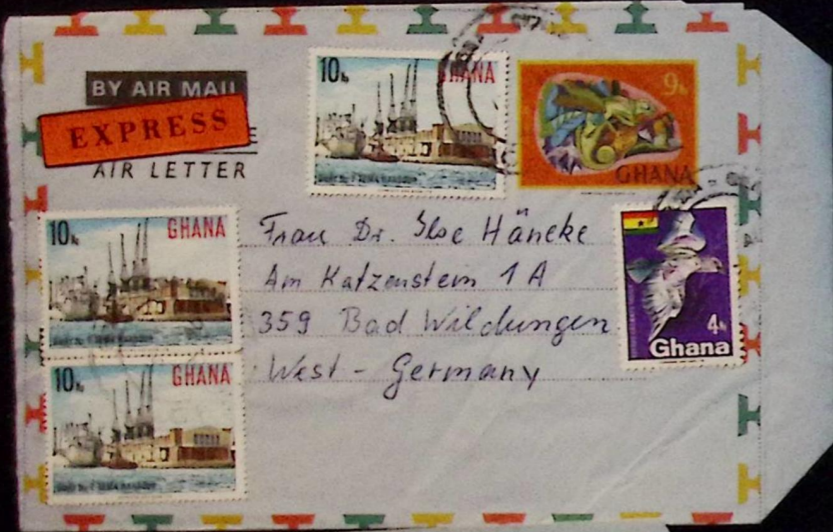 BY AIR MAIL
EXPRESS
AIR LETTER
10 Np GHANA
9 Np
GHANA
4 Np
Ghana
10 Np GHANA
10 Np GHANA
Frau Dr. Ilse Häneke
Am Katzenstein 1 A
359 Bad Wildungen
West - Germany